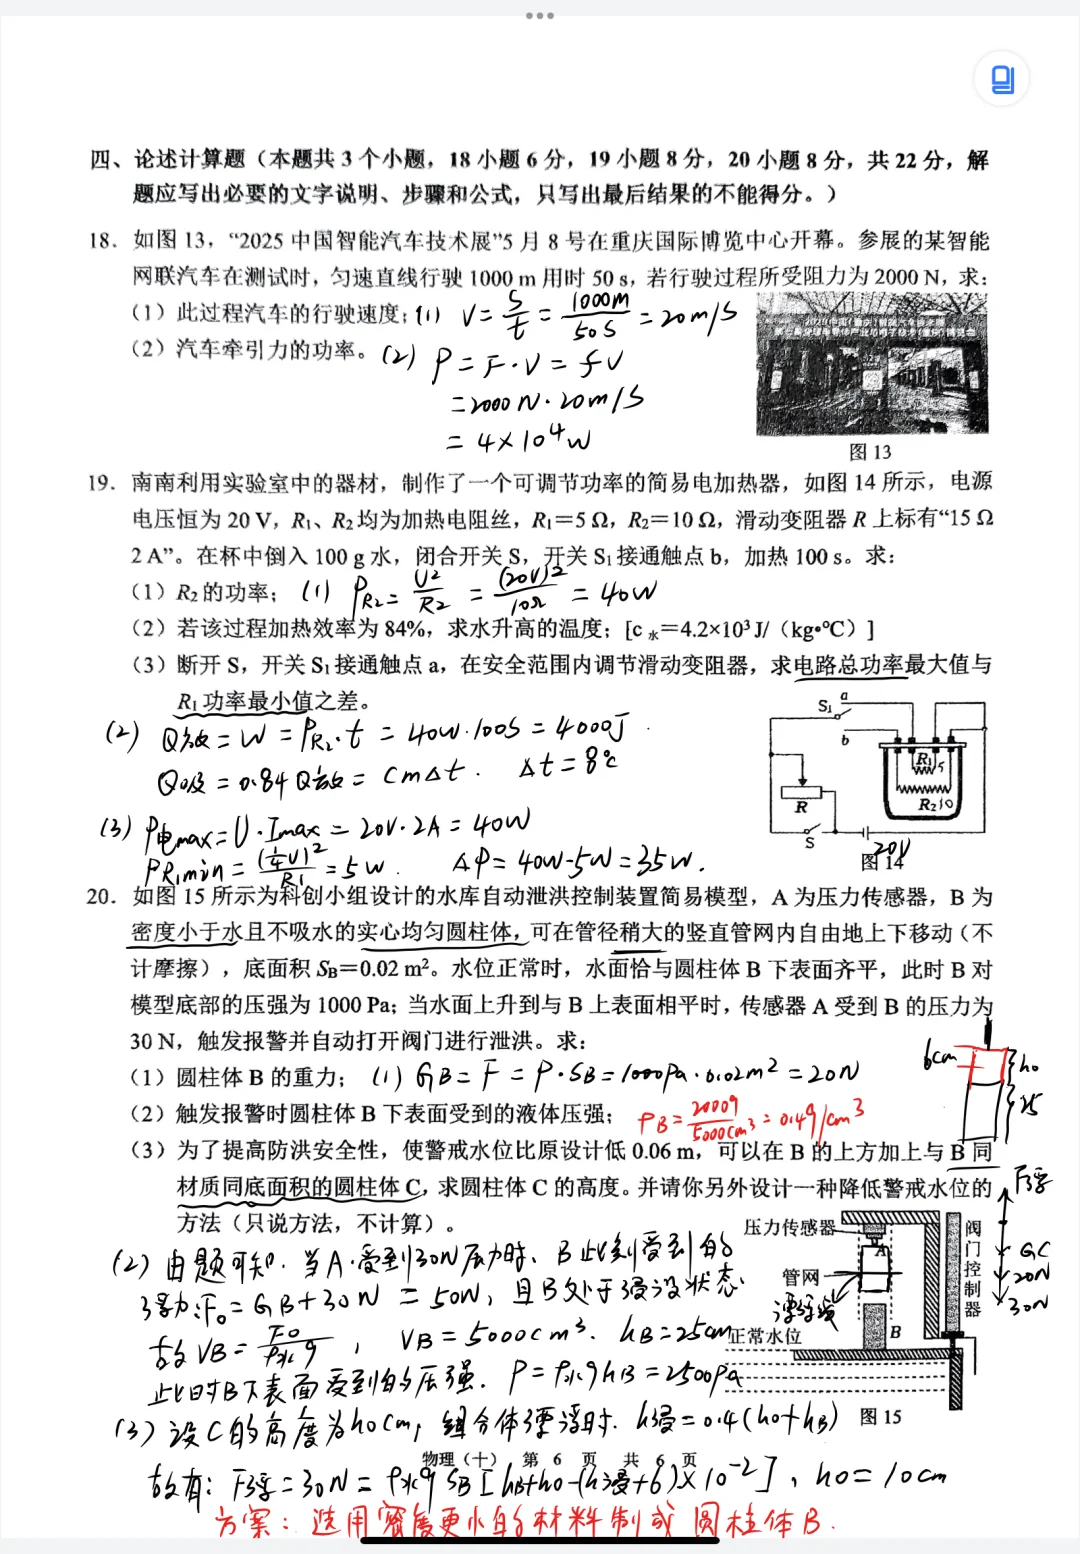 四、论述计算题（本题共 3 个小题，18 小题 6 分，19 小题 8 分，20 小题 8 分，共 22 分，解
题应写出必要的文字说明、步骤和公式，只写出最后结果的不能得分。）
18．如图 13，“2025 中国智能汽车技术展”5 月 8 号在重庆国际博览中心开幕。参展的某智能
网联汽车在测试时，匀速直线行驶 1000 m 用时 50 s，若行驶过程所受阻力为 2000 N，求：
（1）此过程汽车的行驶速度；(1) V = S/t = 1000m/50s = 20m/s
（2）汽车牵引力的功率。(2) P = F·V = fV
= 2000N·20m/s
= 4×10⁴W
图 13
19．南南利用实验室中的器材，制作了一个可调节功率的简易电加热器，如图 14 所示，电源
电压恒为 20 V，R₁、R₂ 均为加热电阻丝，R₁＝5 Ω，R₂＝10 Ω，滑动变阻器 R 上标有“15 Ω
2 A”。在杯中倒入 100 g 水，闭合开关 S，开关 S₁ 接通触点 b，加热 100 s。求：
（1）R₂ 的功率；(1) PR₂ = U²/R₂ = (20V)²/10Ω = 40W
（2）若该过程加热效率为 84%，求水升高的温度；[c 水＝4.2×10³ J/（kg•℃）]
（3）断开 S，开关 S₁ 接通触点 a，在安全范围内调节滑动变阻器，求电路总功率最大值与
R₁ 功率最小值之差。
(2) Q放 = W = PR₂·t = 40W·100S = 4000J
Q吸 = 0.84Q放 = cm△t . △t = 8℃
S₁ a
b
R₁ 5
R₂ 10
R
S
20V
图 14
(3) P电max = U·Imax = 20V·2A = 40W
PR₁min = U²/R₁ = 5W . △P = 40W-5W = 35W .
20．如图 15 所示为科创小组设计的水库自动泄洪控制装置简易模型，A 为压力传感器，B 为
密度小于水且不吸水的实心均匀圆柱体，可在管径稍大的竖直管网内自由地上下移动（不
计摩擦），底面积 SB＝0.02 m²。水位正常时，水面恰与圆柱体 B 下表面齐平，此时 B 对
模型底部的压强为 1000 Pa；当水面上升到与 B 上表面相平时，传感器 A 受到 B 的压力为
30 N，触发报警并自动打开阀门进行泄洪。求：
（1）圆柱体 B 的重力；(1) GB = F = P·SB = 1000Pa·0.02m² = 20N
（2）触发报警时圆柱体 B 下表面受到的液体压强；ρB = 2000g/5000cm³ = 0.4g/cm³
（3）为了提高防洪安全性，使警戒水位比原设计低 0.06 m，可以在 B 的上方加上与 B 同
材质同底面积的圆柱体 C，求圆柱体 C 的高度。并请你另外设计一种降低警戒水位的
方法（只说方法，不计算）。
6cm
h₀
25
F浮
GC
20N
30N
压力传感器
A
管网
漂浮线
正常水位
B
阀门控制器
图 15
(2) 由题可知．当A·受到30N压力时、B此刻受到的
浮力:F₀ = GB+30N = 50N，且B处于浸没状态
故 VB = F₀/ρ水g ， VB = 5000cm³. hB = 25cm
此时B下表面受到的压强．P = ρ水ghB = 2500Pa
(3) 设C的高度为h₀cm，组合体漂浮时. h浸 = 0.4(h₀+hB)
物理（十） 第 6 页 共 6 页
故有: F浮 = 30N = ρ水g SB[hB+h₀-(h浸+6)×10⁻²]，h₀ = 10cm
方案：选用密度更小的材料制成圆柱体B．